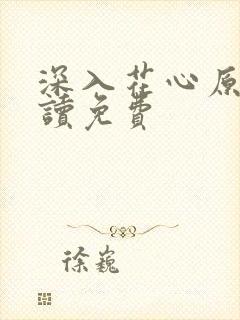 深入茬心原
讀免費
徐巍